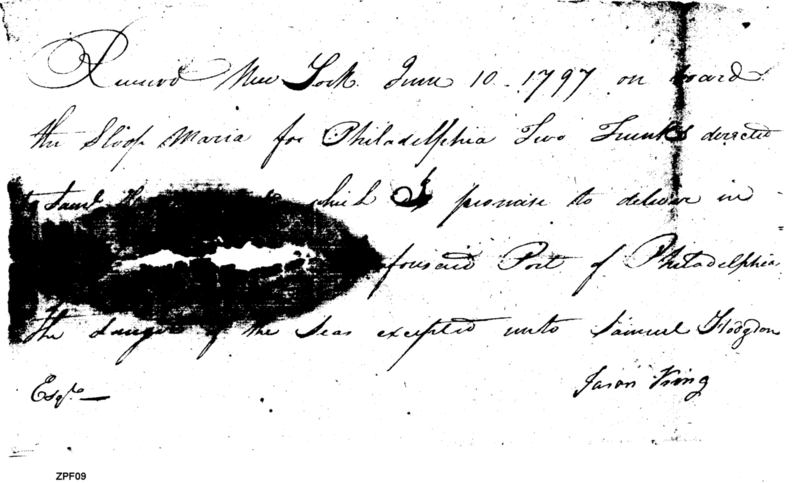 Received New York June 10 - 1797 on board
the Sloop Maria for Philadelphia Two Trunks directed
to Saml which I promise to deliver in
foresaid Port of Philadelphia
the danger of the Seas excepted unto Samuel Hodgdon
Esqr. —
Jason King
ZPF09